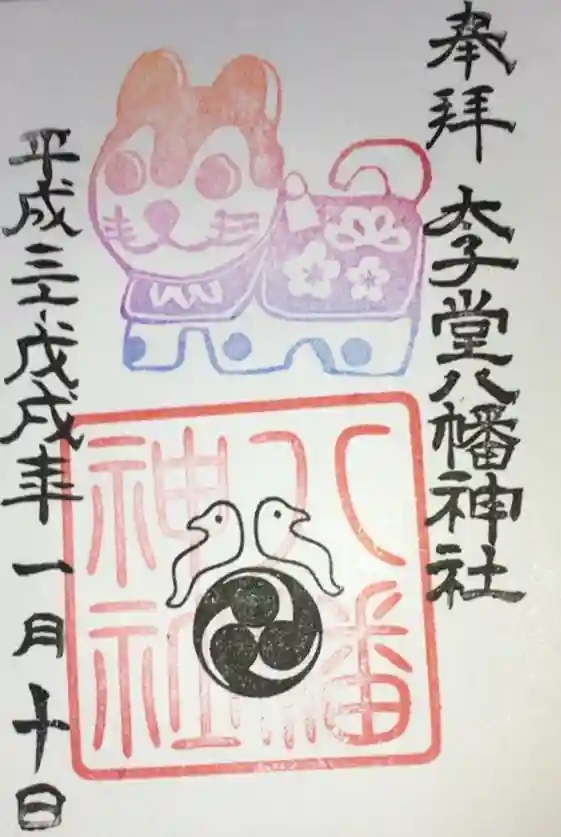 奉拝 太子堂八幡神社
八幡
神社
平成三十戊戌年一月十日